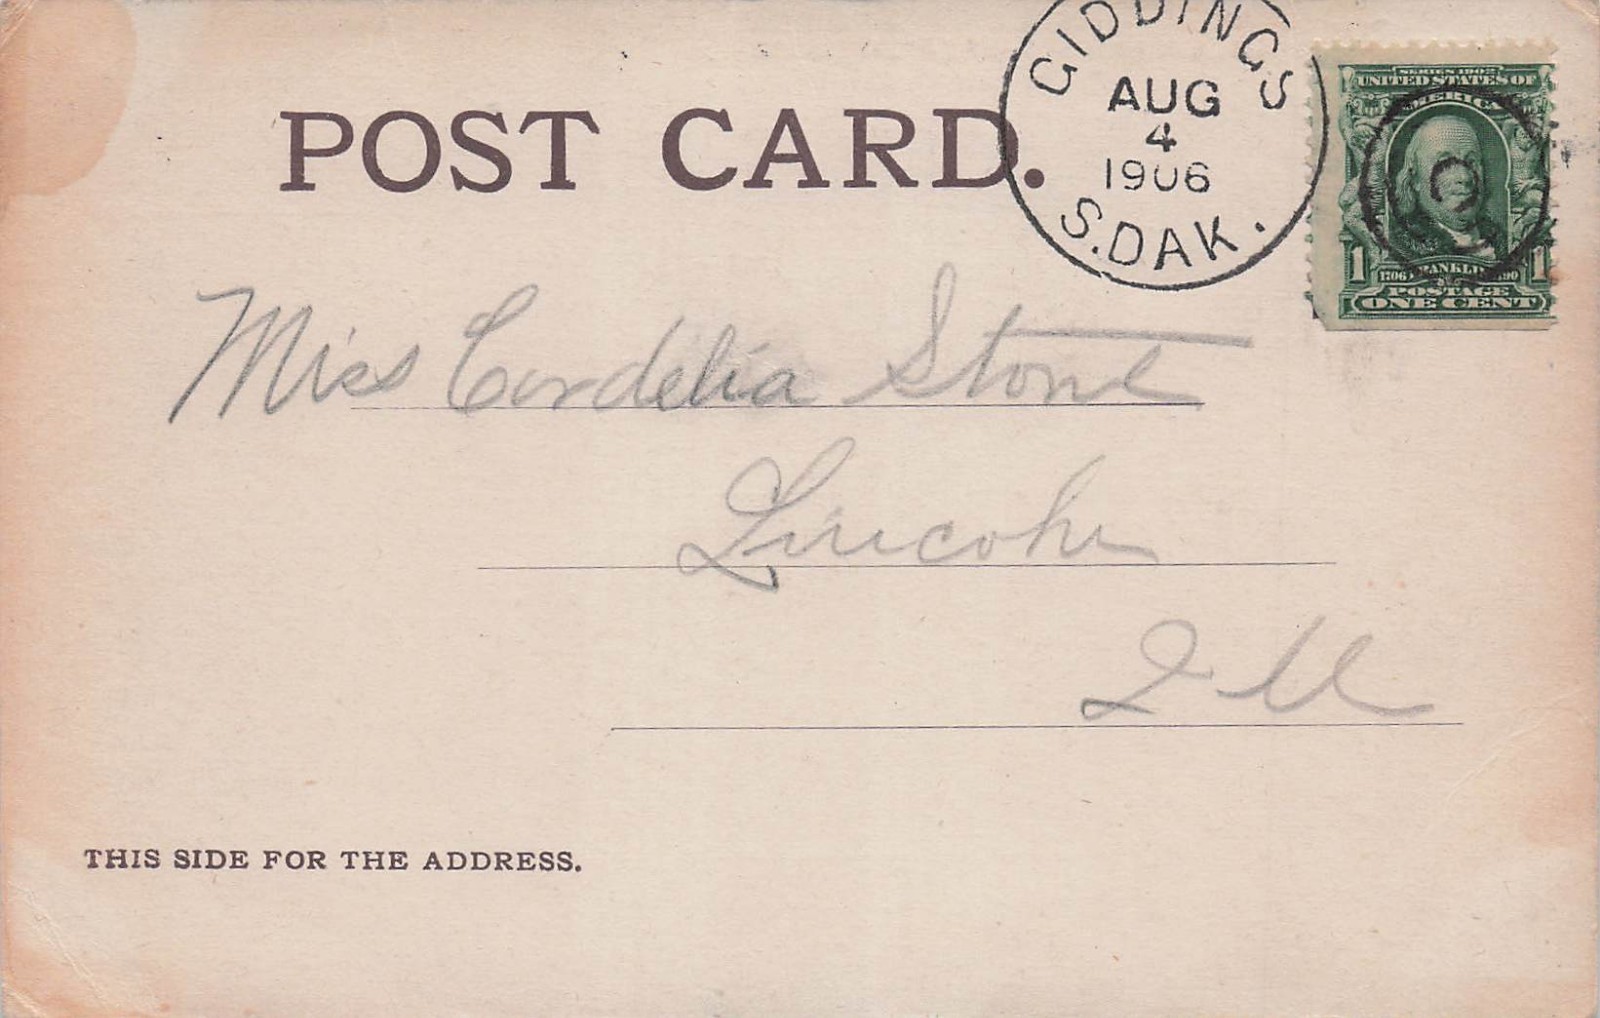 GIDDINGS
AUG
4
1906
S.DAK.
SERIES 1902
UNITED STATES OF
AMERICA
1 1706 FRANKLIN 1790 1
POSTAGE
ONE CENT
POST CARD.
Miss Cordelia Stone
Lincoln
Ill
THIS SIDE FOR THE ADDRESS.